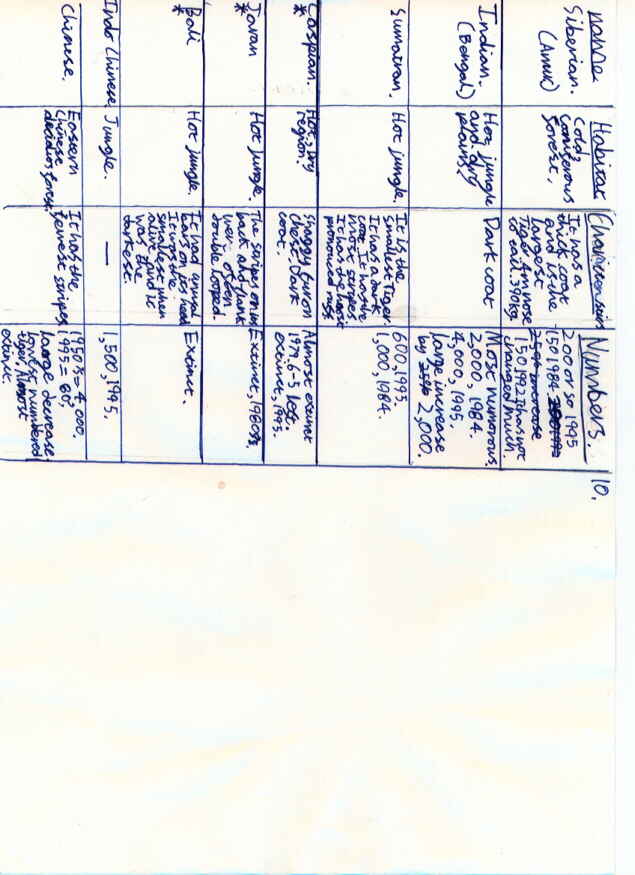 10.
name Habitat Numbers.
Siberian.
(Amur)
Cold,
coniferous
forest.
It has a
thick coat
and is the
largest
Tiger. 4m nose
to tail. 390kg
200 or so 1995
150 1984
25% increase
150, 1992 It has not
changed much.
Indian.
(Bengal)
Hot, jungle
and dry
plains?
Dark coat
Most numorous
2,000, 1984.
4,000, 1995.
large increase
by 2,000.
Sumatran.
Hot jungle.
It is the
smallest tiger.
It has a dark
coat. It has the
most stripes
It has the most
pronounced ruff
600, 1995.
1,000, 1984.
Caspian.
*
Hot, dry
region.
Shaggy fur on
chest. Dark
coat.
Almost extinct
1979. 6-5 left.
extinct, 1995.
Javan
*
Hot jungle.
The stripes on its
back and flank
were often
double looped.
Extinct, 1980s.
Bali
*
Hot jungle.
It had unusual
bars on its head
It was the
smallest when
alive and it
was the
darkest.
Extinct.
Indo Chinese
Jungle.
—
1,500, 1995.
Chinese.
Eastern
Chinese
decidious forest.
It has the
fewest stripes
1950's = 4,000.
1995 = 60,
large decrease
lowest numbered
tiger, Almost
extinct.